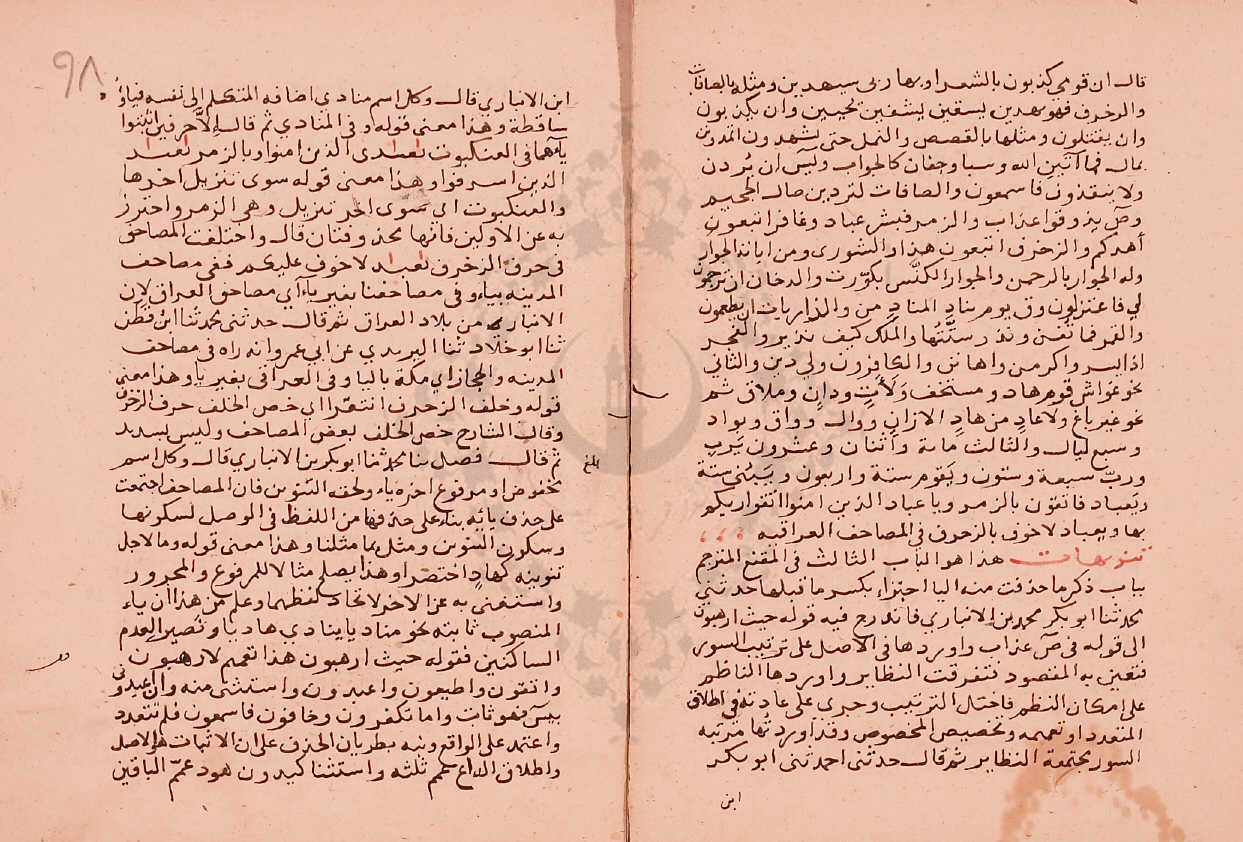 قال ان قومي كذبون بالشعراو بها ربي سيهدين ومثله بالصافات
والزخرف فهو يهدين يسقين يشفين يحيين وان يكذبون
وان يقتلون ومثلها بالقصص والنمل حتى تشهدون اتمدونن
بمال فما آتين الله وسبا وجفان كالجواب وليس ان يردن
ولا ينقذون فاسمعون والصافات لتردين صال الجحيم
وص يذوقوا عذاب والزمر فبشر عباد وغافر اتبعون
أهدكم والزخرف اتبعون هذا والشورى ومن اياته الجوار
وله الجوار بالرحمن والجوار الكنس بكورت والدخان ان ترجمون
لي فاعتزلون وق يوم يناد المناد من والذاريات ان يطعمون
والقمر فما تغن ونذر ستتها والملك كيف نذير والفجر
اذا يسر واكرمن واهانن والكافرون ولي دين والثاني
نحو غواش قوم هاد ومستخف ولات ودان وملاق ثم
نحو غير باغ ولا عاد من هاد الا زان ووال وواق وبواد
وسبع ليال والثالث مائة واثنان وعشرون يرب
ورب سبعة وستون ويقوم ستة واربعون ويبني ستة
ويعباد فاتقون بالزمر ويا عباد الذين امنوا اتقوا ربكم
بها ويعباد لا خوف بالزخرف في المصاحف العراقية
تنويهات هذا هو الباب الثالث في المقنع المترجم
بباب ذكر ما حذفت منه اليا اجتزاء بكسر ما قبلها حدثني
محمد ثنا ابو بكر محمد بن الانباري فاندرج فيه قوله حيث ارهبون
الى قوله في ص عذاب واوردها في الاصل على ترتيب السور
فتعين به المقصود فتفرقت النظاير واوردها الناظم
على امكان النظم فاختل الترتيب وجرى على عادته في اطلاق
المتعدد او تعميمه وتخصيص المخصوص وقد اوردتها مرتبة
السور مجتمعة النظاير ثم قال حدثني احمد ثني ابو بكر
ابن
٩٨
ابن الانباري قال وكل اسم منادى اضافه المتكلم الى نفسه فياؤه
ساقطة وهذا معنى قوله وفي المنادي ثم قال الا حرفين اثبتوا
ياءهما في العنكبوت يعبادي الذين امنوا وبالزمر يعباد
الذين اسرفوا وهذا معنى قوله سوى تنزيل اخرها
والعنكبوت اي سوى اخر تنزيل وهي الزمر واحترز
به عن الاولين فانها محذوفتان قال واختلفت المصاحف
في حرف الزخرف يعباد لا خوف عليكم ففي مصاحف
المدينة بياء وفي مصاحفنا بغير ياء اي مصاحف العراق لان
الانباري من بلاد العراق ثم قال حدثني محمد ثنا ابن قطن
ثنا ابو خلاد ثنا اليزيدي عن ابي عمرو انه راه في مصاحف
المدينة والحجاز اي مكة باليا وفي العراقي بغير يا وهذا معنى
قوله وخلف الزخرف انتقرا اي خص الخلف حرف الزخرف
وقال الشارح خص الخلف بعض المصاحف وليس بسديد
ثم قال فصل ثنا محمد ثنا ابو بكر بن الانباري قال وكل اسم
بلغ
مخفوض او مرفوع اخره ياء ولحقه التنوين فان المصاحف اجتمعت
على حذف يائه بناء على حذفها من اللفظ في الوصل لسكونها
وسكون التنوين ومثل بما مثلنا وهذا معنى قوله وما لاجل
تنوينه كهاد اختصرا وهذا يصلح مثالا للمرفوع والمجرور
واستغنى به عن الاخر لاتحاد لفظهما وعلم من هذا ان ياء
المنصوب ثابتة نحو مناديا ينادي هاديا ونصيرا لعدم
الساكنين فقوله حيث ارهبون هذا تعميم لارهبون
واتقون واطيعون واعبدون واستثنى منه وان اعبدوني
بيس فهو ثابت واما تكفرون وخافون فاسمعون فلم تتعدد
واعتمد على الواقع ونبه بطريان الحذف على ان الاثبات هو الاصل
واطلاق الداع عمم ثلثه واستثنا كيدون هود عمم الباقين